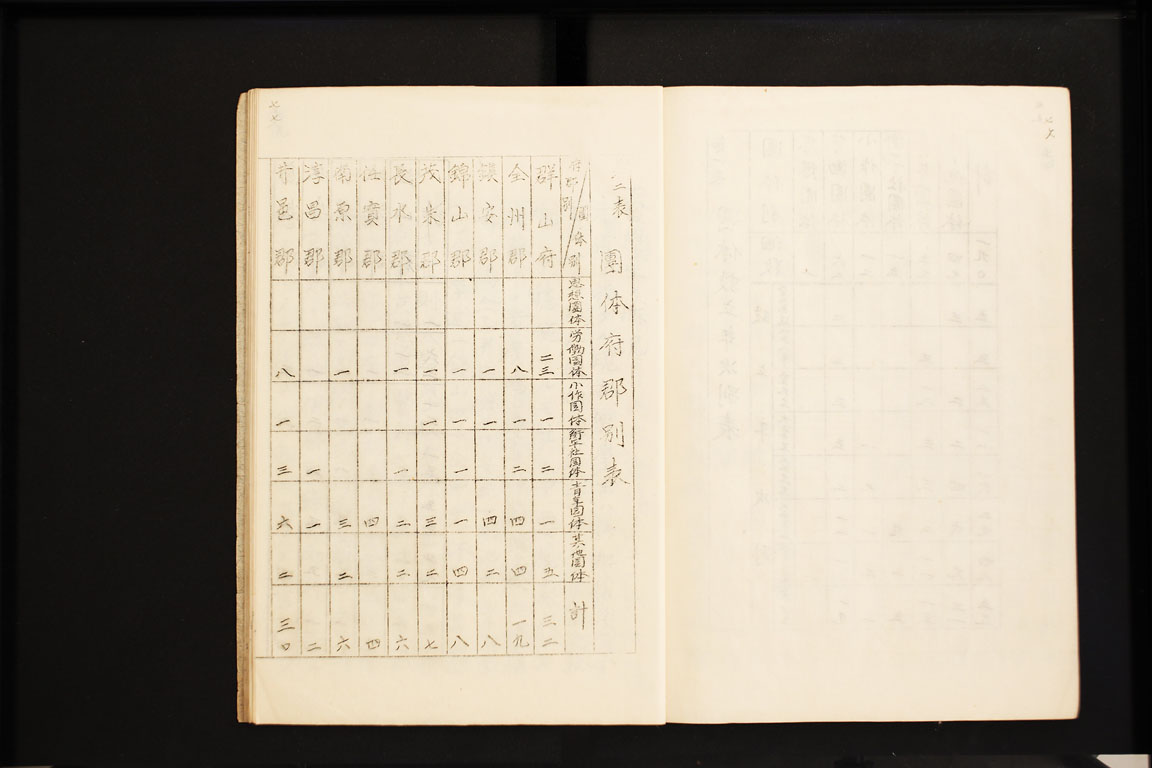 二表　團体府郡別表
府郡別　團体別　思想團体　労働団体　小作団体　衡平社團体　青年団体　其他團体　計
群山府　二三　一　二　一　五　三二
全州郡　八　一　二　四　四　一九
鎮安郡　一　一　四　二　八
錦山郡　一　一　一　一　四　八
茂朱郡　一　一　三　二　七
長水郡　一　一　二　二　六
任實郡　四　四
南原郡　一　三　二　六
淳昌郡　一　一　二
井邑郡　八　一　三　六　二　三〇